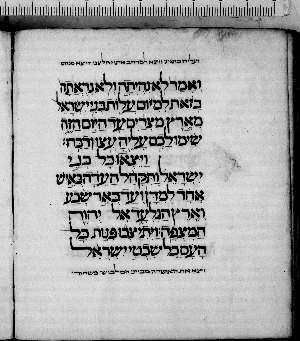 ואמר לא נהיתה ולא נראתה
כזאת למיום עלות בני ישראל
מארץ מצרים עד היום הזה
שימו לכם עליה עצו ודברו
ויצאו כל בני
ישראל ותקהל העדה כאיש
אחד למדן ועד באר שבע
וארץ הגלעד אל יהוה
המצפה ויתיצבו פנות כל
העם כל שבטי ישראל